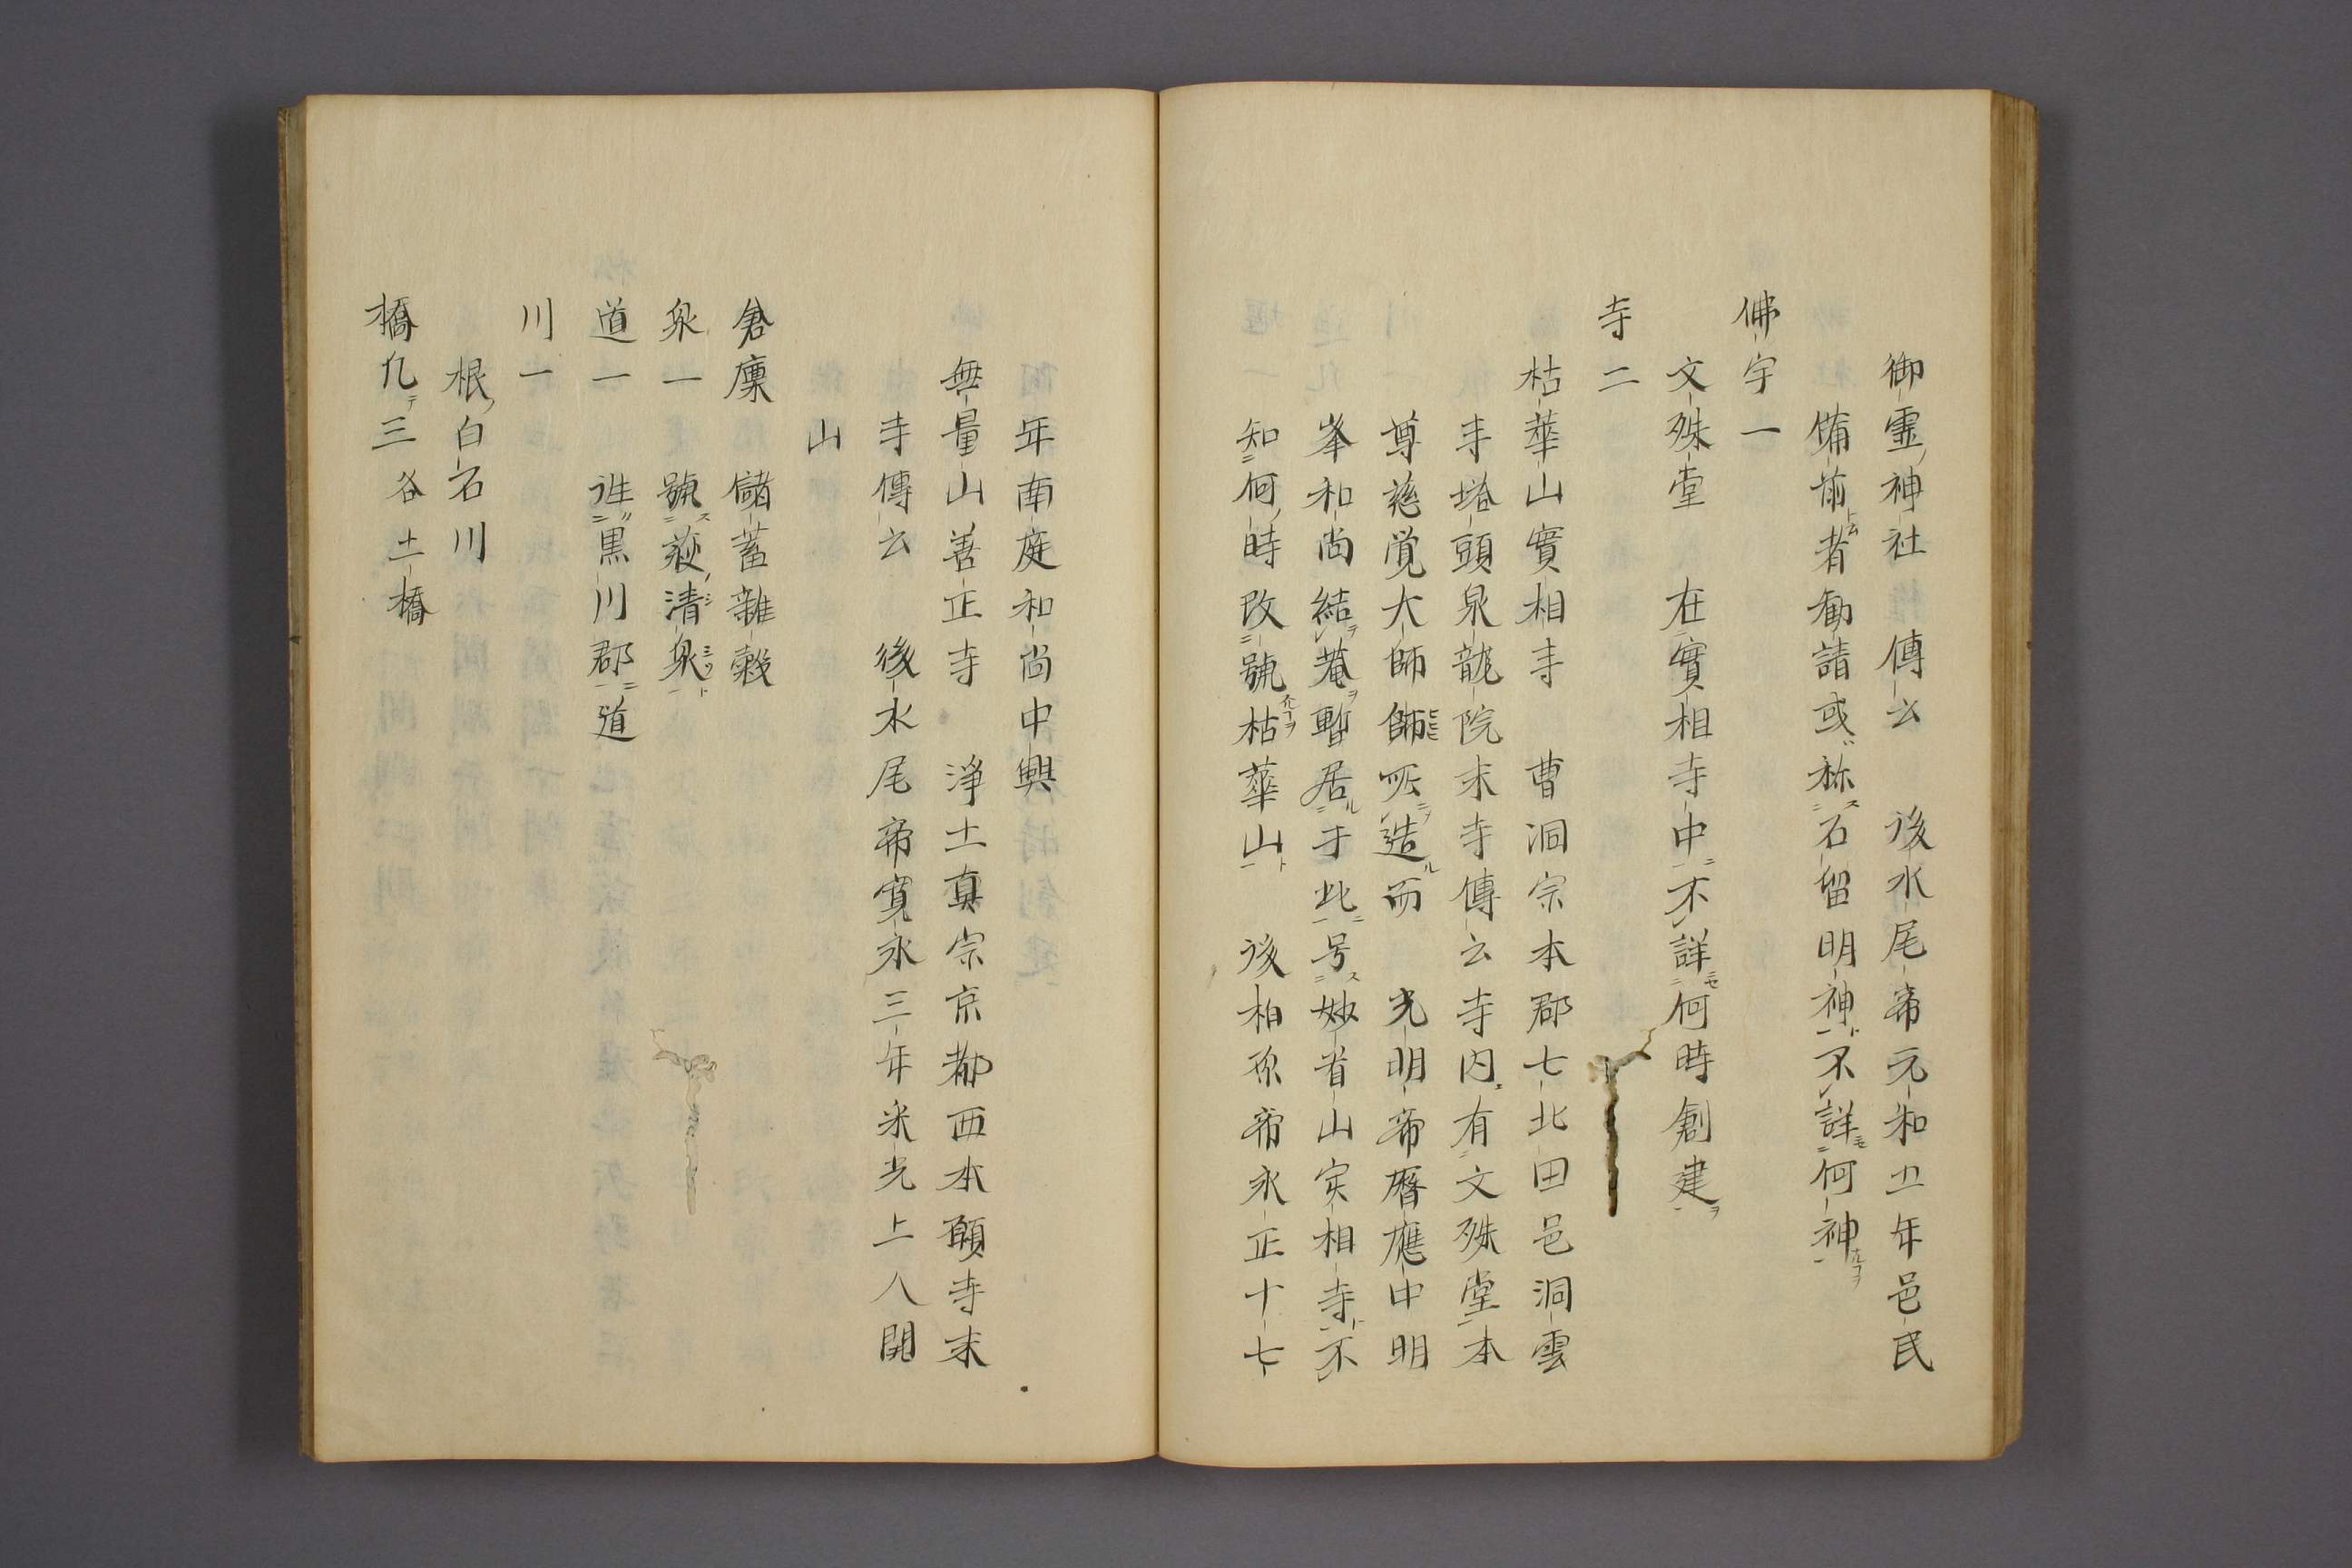 御霊神社 傳云 後水尾帝元和五年邑民
備前者勧請或称石留明神不詳何神
佛宇一
文殊堂 在實相寺中不詳何時創建
寺二
枯華山實相寺 曹洞宗本郡七北田邑洞雲
寺塔頭泉龍院末寺傳云寺内有文殊堂本
尊慈覚大師師所造而 光明帝暦應中明
峯和尚結菴暫居于此号妙首山実相寺不
知何時改號枯華山 後柏原帝永正十七
年南庭和尚中興
無量山善正寺 浄土真宗京都西本願寺末
寺傳云 後水尾帝寛永三年栄光上人開
山
倉廩 儲蓄雑穀
泉一 號荻清泉
道一 往黒川郡道
川一
根白石川
橋凡三 各土橋